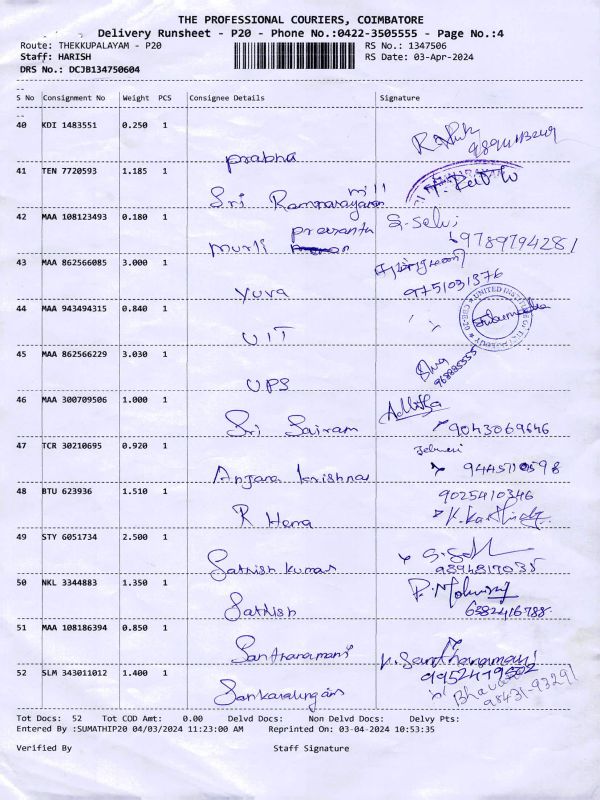 THE PROFESSIONAL COURIERS, COIMBATORE
Delivery Runsheet - P20 - Phone No.:0422-3505555 - Page No.:4
Route: THEKKUPALAYAM - P20 RS No.: 1347506
Staff: HARISH RS Date: 03-Apr-2024
DRS No.: DCJB134750604
S No Consignment No Weight PCS Consignee Details Signature
40 KDI 1483551 0.250 1
prabha
41 TEN 7720593 1.185 1
Sri Ramnarayanan mill
42 MAA 108123493 0.180 1 S. Selvi
Murli prasanth 9789794281
43 MAA 862566085 3.000 1
yuva 9751031376
44 MAA 943494315 0.840 1 UNITED
UIT
45 MAA 862566229 3.030 1
UPS
46 MAA 300709506 1.000 1
Sri Sairam 9043069646
47 TCR 30210695 0.920 1
Anjana krishna 9445710598
48 BTU 623936 1.510 1 9025410346
R Hema
49 STY 6051734 2.500 1
Sathish kumar 9894817035
50 NKL 3344883 1.350 1
Sathish 6382416788
51 MAA 108186394 0.850 1
Santhanamani K. Santhanamani
52 SLM 343011012 1.400 1 9952479502
Sankaralingam 98431-93291
Tot Docs: 52 Tot COD Amt: 0.00 Delvd Docs: Non Delvd Docs: Delvy Pts:
Entered By :SUMATHIP20 04/03/2024 11:23:00 AM Reprinted On: 03-04-2024 10:53:35
Verified By Staff Signature